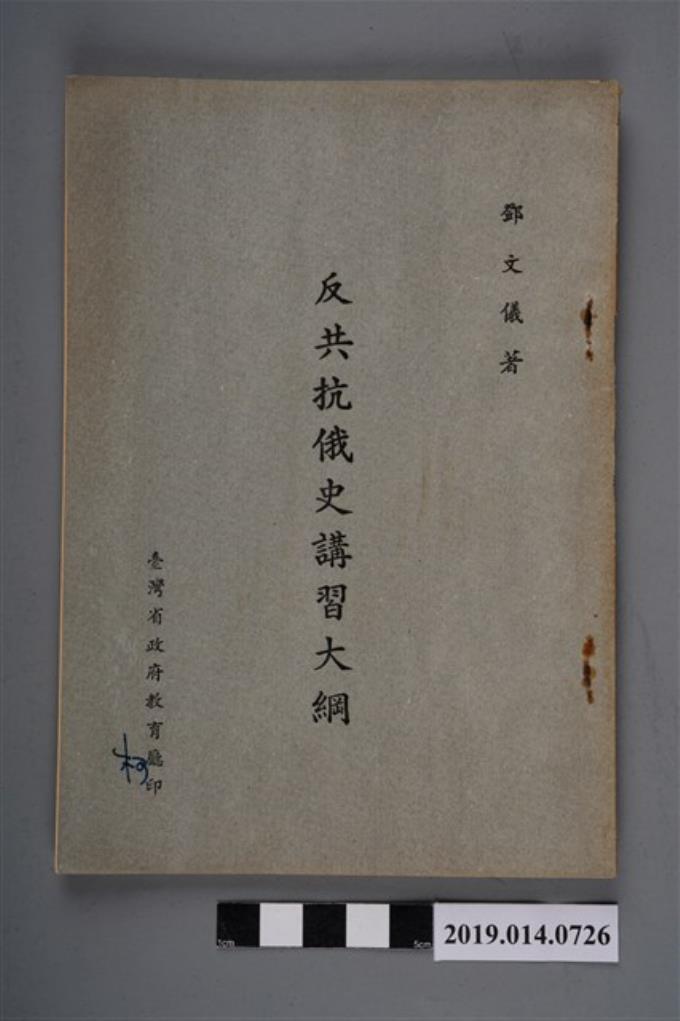 鄧文儀著
反共抗俄史講習大綱
臺灣省政府教育廳印
柯
0cm
5cm
2019.014.0726